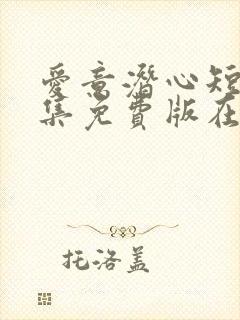 爱意潜心短
集免费版在
托洛盖